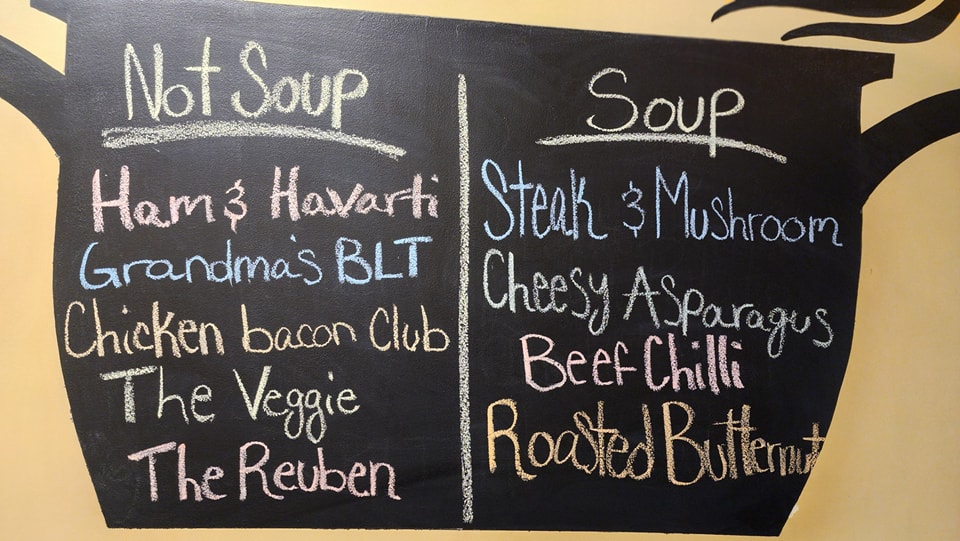 Not Soup
Ham & Havarti
Grandma's BLT
Chicken bacon Club
The Veggie
The Reuben
Soup
Steak & Mushroom
Cheesy Asparagus
Beef Chilli
Roasted Butternut